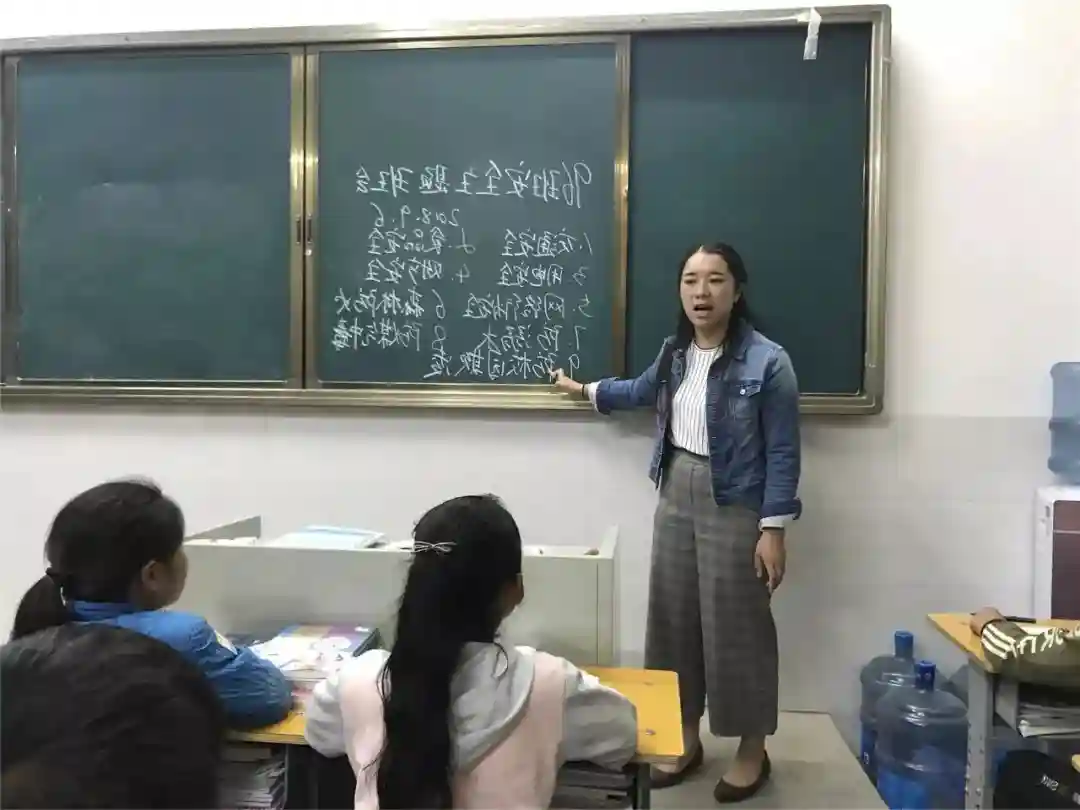 96班安全主题班会
2018.9.6
1.交通安全 2.食品安全
3.用电安全 4.安全
5.网络安全 6 森林防火
7.防溺水 8 防煤气中毒
9.防校园欺凌